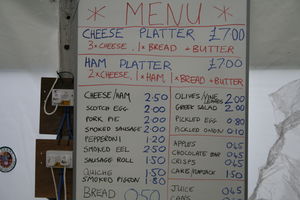 * MENU *
CHEESE PLATTER £7.00
3 x CHEESE, 1 x BREAD + BUTTER
HAM PLATTER £7.00
2 x CHEESE, 1 x HAM, 1 x BREAD + BUTTER
CHEESE/HAM 2.50
SCOTCH EGG 2.00
PORK PIE 2.00
SMOKED SAUSAGE 2.00
PEPPERONI 1.20
SMOKED EEL 2.50
SAUSAGE ROLL 1.50
QUICHE 1.50
SMOKED PIGEON 1.80
BREAD 0.50
OLIVES/VINE LEAVES 2.00
GREEK SALAD 2.00
PICKLED EGG 0.80
PICKLED ONION 0.10
APPLES 0.45
CHOCOLATE BAR 0.45
CRISPS 0.45
CAKE/FLAPJACK 1.50
JUICE 0.45
CANS